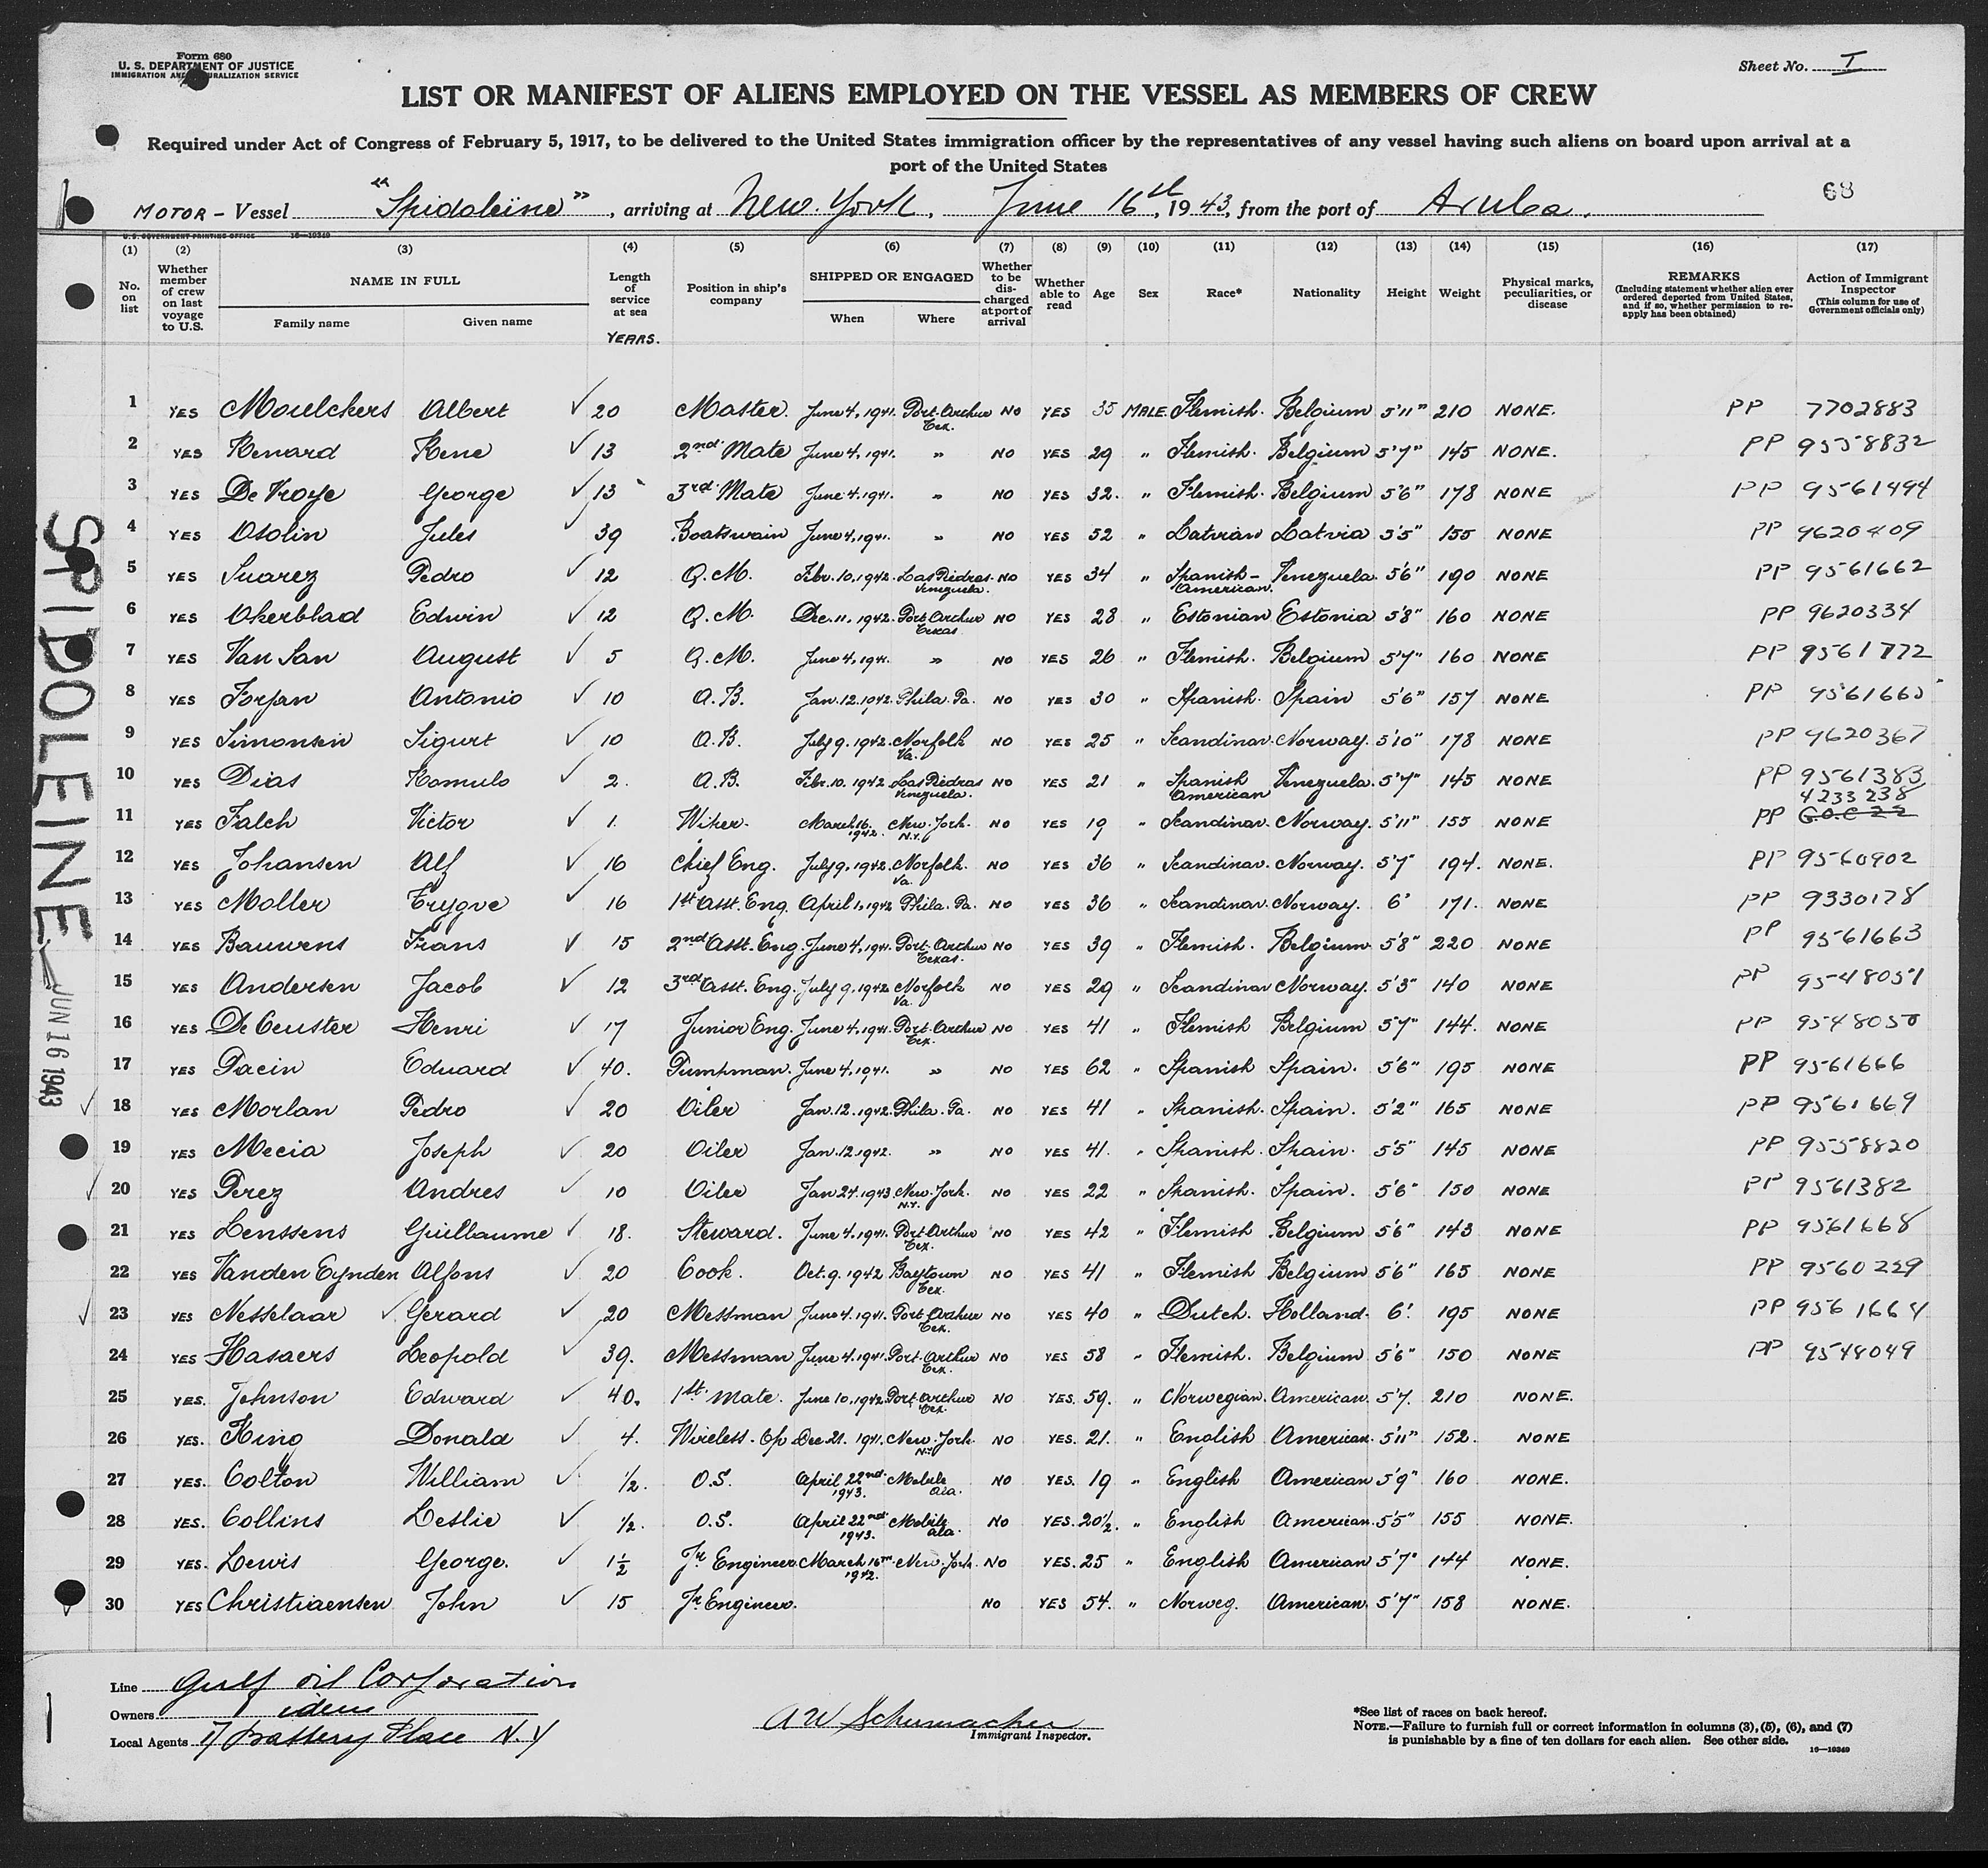 Form 680
U. S. DEPARTMENT OF JUSTICE
IMMIGRATION AND NATURALIZATION SERVICE
Sheet No. I
LIST OR MANIFEST OF ALIENS EMPLOYED ON THE VESSEL AS MEMBERS OF CREW
Required under Act of Congress of February 5, 1917, to be delivered to the United States immigration officer by the representatives of any vessel having such aliens on board upon arrival at a
port of the United States
68
MOTOR - Vessel "Spidoleine", arriving at New York, June 16th, 1943, from the port of Aruba.
U. S. GOVERNMENT PRINTING OFFICE 16—19349
(1) (2) (3) (4) (5) (6) (7) (8) (9) (10) (11) (12) (13) (14) (15) (16) (17)
No. on list
Whether member of crew on last voyage to U.S.
NAME IN FULL
Family name
Given name
Length of service at sea
YEARS.
Position in ship's company
SHIPPED OR ENGAGED
When
Where
Whether to be discharged at port of arrival
Whether able to read
Age
Sex
Race*
Nationality
Height
Weight
Physical marks, peculiarities, or disease
REMARKS
(Including statement whether alien ever ordered deported from United States, and if so, whether permission to reapply has been obtained)
Action of Immigrant Inspector
(This column for use of Government officials only)
1 YES Moulckers Albert ✓ 20 Master. June 4, 1941. Port Arthur Tex. NO YES 35 MALE. Flemish. Belgium 5'11" 210 NONE. PP 7702883
2 YES Renard Rene ✓ 13 2nd Mate June 4, 1941. " NO YES 29 " Flemish. Belgium 5'7" 145 NONE. PP 9558832
3 YES De Troye George ✓ 13 3rd Mate June 4, 1941. " NO YES 32. " Flemish. Belgium 5'6" 178 NONE PP 9561494
4 YES Osolin Jules ✓ 39 Boatswain June 4, 1941. " NO YES 52 " Latvian Latvia 5'5" 155 NONE PP 9620409
5 YES Suarez Pedro ✓ 12 Q.M. Febr. 10, 1942. Las Piedras Venezuela. NO YES 34 " Spanish-American. Venezuela. 5'6" 190 NONE PP 9561662
6 YES Okerblad Edwin ✓ 12 Q.M. Dec. 11, 1942. Port Arthur Texas NO YES 28 " Estonian Estonia 5'8" 160 NONE PP 9620334
7 YES Van San August ✓ 5 Q.M. June 4, 1941. " NO YES 26 " Flemish. Belgium 5'7" 160 NONE PP 9561772
8 YES Forjan Antonio ✓ 10 A.B. Jan. 12. 1942. Phila. Pa. NO YES 30 " Spanish. Spain 5'6" 157 NONE PP 9561665
9 YES Simonsen Sigurt ✓ 10 A.B. July 9. 1942. Norfolk Va. NO YES 25 " Scandinav. Norway. 5'10" 178 NONE PP 9620367
10 YES Dias Romulo ✓ 2. A.B. Febr. 10. 1942 Las Piedras Venezuela. NO YES 21 " Spanish American Venezuela. 5'7" 145 NONE PP 9561383
4233238
11 YES Falch Victor ✓ 1. Wiper. March 16. 1942. New-York. N.Y. NO YES 19 " Scandinav. Norway. 5'11" 155 NONE PP
12 YES Johansen Alf ✓ 16 Chief Eng. July 9, 1942. Norfolk. Va. NO YES 36 " Scandinav. Norway. 5'7" 194. NONE. PP 9560902
13 YES Moller Trygve ✓ 16 1st Asst. Eng. April 1, 1942 Phila. Pa. NO YES 36 " Scandinav. Norway. 6' 171. NONE PP 9330178
14 YES Bauwens Frans ✓ 15 2nd Asst. Eng. June 4, 1941. Port Arthur Texas. NO YES 39 " Flemish. Belgium 5'8" 220 NONE PP 9561663
15 YES Andersen Jacob ✓ 12 3rd Asst. Eng. July 9, 1942. Norfolk Va. NO YES 29 " Scandinav Norway. 5'3" 140 NONE PP 9548051
16 YES De Ceuster Henri ✓ 17 Junior Eng. June 4, 1941. Port Arthur Tex. NO YES 41 " Flemish Belgium 5'7" 144. NONE PP 9548050
17 YES Pacin Eduard ✓ 40. Pumpman. June 4, 1941. " NO YES 62 " Spanish Spain. 5'6" 195 NONE PP 9561666
18 YES Morlan Pedro ✓ 20 Oiler Jan. 12. 1942. Phila. Pa. NO YES 41 " Spanish. Spain. 5'2" 165 NONE PP 9561669
19 YES Mecia Joseph ✓ 20 Oiler Jan. 12, 1942. " NO YES 41. " Spanish. Spain. 5'5" 145 NONE PP 9558820
20 YES Perez Andres ✓ 10 Oiler Jan 24. 1943 New-York. N.Y. NO YES 22 " Spanish. Spain. 5'6" 150 NONE PP 9561382
21 YES Lenssens Guillaume ✓ 18. Steward. June 4, 1941. Port Arthur Tex. NO YES 42 " Flemish Belgium 5'6" 143 NONE PP 9561668
22 YES Vanden Eynden Alfons ✓ 20 Cook. Oct. 9. 1942 Baytown Tex. NO YES 41 " Flemish Belgium 5'6" 165 NONE PP 9560229
23 YES Nesselaar ✓ Gerard ✓ 20 Messman June 4. 1941. Port Arthur Tex. NO YES 40 " Dutch. Holland. 6'. 195 NONE PP 9561664
24 YES Hasaers Leopold ✓ 39. Messman June 4. 1941. Port Arthur Tex. NO YES 58 " Flemish. Belgium 5'6" 150 NONE PP 9548049
25 YES. Johnson Edward ✓ 40. 1st Mate. June 10, 1942. Port Arthur Tex. NO YES. 59. " Norwegian. American. 5'7. 210 NONE.
26 YES. King Donald ✓ 4. Wireless. Op Dec 21. 1941. New-York N.Y. NO YES. 21. " English American. 5'11" 152. NONE
27 YES. Colton William ✓ 1/2. O.S. April 22nd 1943. Mobile Ala. NO YES. 19 " English American 5'9" 160 NONE.
28 YES. Collins Leslie ✓ 1/2. O.S. April 22nd 1943. Mobile Ala. NO YES. 20 1/2. " English American. 5'5" 155 NONE.
29 YES. Lewis George. ✓ 1 1/2 Jr Engineer March 16th 1942. New-York. NO YES. 25 " English American 5'7" 144 NONE.
30 YES Christiaensen John ✓ 15 Jr. Engineer. NO YES 54. " Norweg. American 5'7" 158 NONE.
SPIDOLEINE
JUN 16 1943
Line Gulf oil Corporation
Owners idem
Local Agents 17 Battery Place N.Y
AW Schumacher
Immigrant Inspector.
*See list of races on back hereof.
NOTE.—Failure to furnish full or correct information in columns (3), (5), (6), and (7)
is punishable by a fine of ten dollars for each alien. See other side.
16—19349